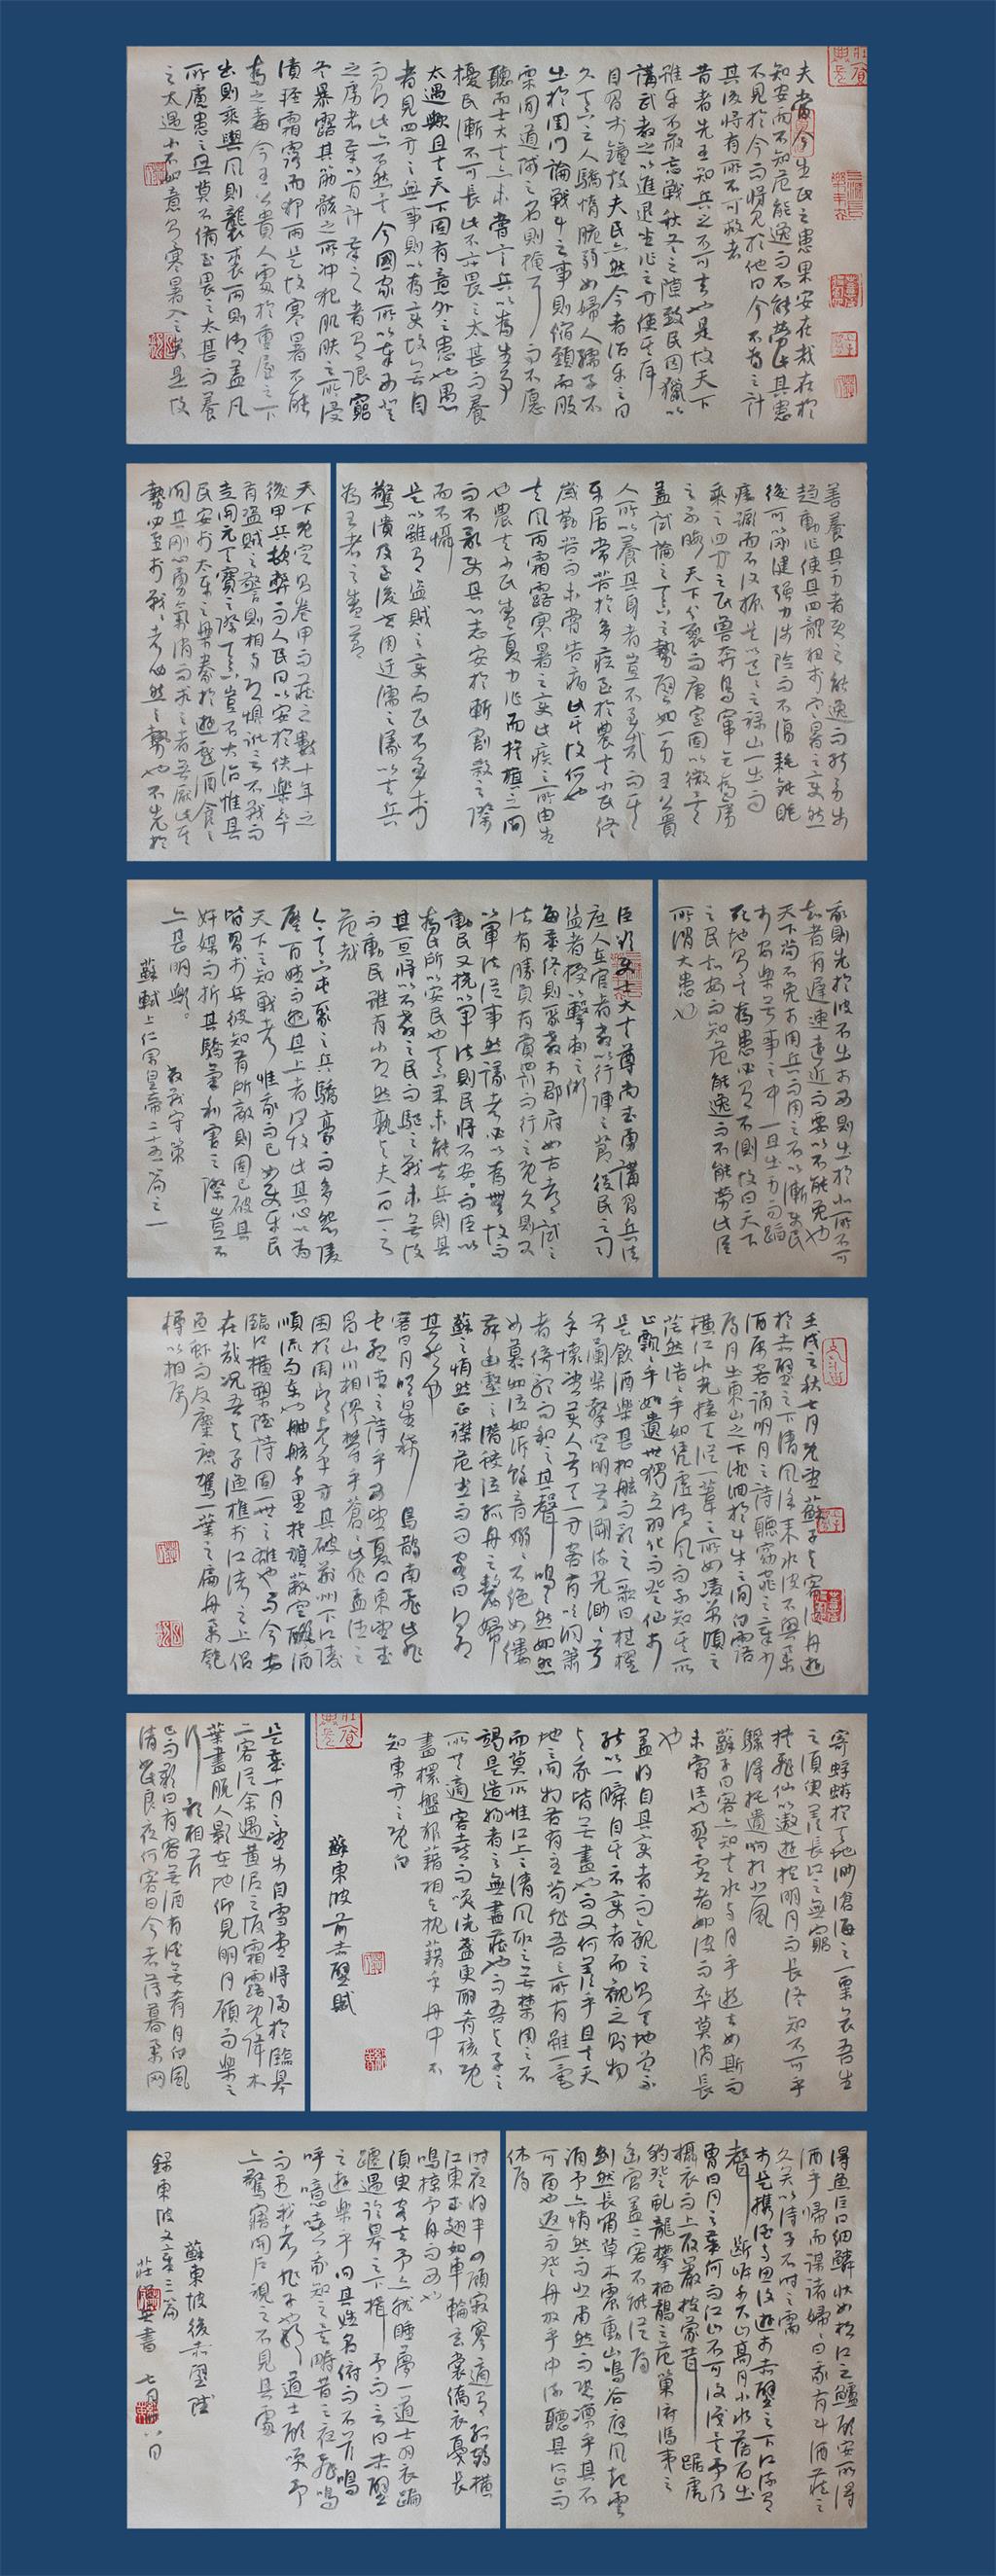 夫當今生民之患果安在哉在於
知安而不知危能逸而不能勞此其患
不見於今而將見於他日今不為之計
其後將有所不可救者
昔者先王知兵之不可去也是故天下
雖平不敢忘戰秋冬之隙致民田獵以
講武教之以進退坐作之方使其耳
目習於鐘鼓夫民亦然今者治平之日
久天下之人驕惰脆弱如婦人孺子不
出於閨門論戰鬥之事則縮頸而股
栗聞盜賊之名則掩耳而不愿
聽而士大夫亦未嘗言兵以為生事
擾民漸不可長此不亦畏之太甚而養
太過歟且夫天下固有意外之患也愚
者見四方之無事則以為變故無自
而有此亦不然矣今國家所以奉西北
之虜者歲以百計奉之者有限窮
冬暴露其筋骸之所沖犯肌膚之所浸
漬輕霜露而狎雨是故寒暑不能
為之毒今王公貴人處於重屋之下
出則乘輿風則襲裘雨則御蓋凡
所慮患之具莫不備至畏之太甚而養
之太過小不如意則寒暑入之矣是故
善養身者使之能逸而能勞步
趨動作使其四體狃於寒暑之變然
後可以剛健強力涉險而不傷耗鈍眊
痿蹶而不復振是以區區之祿山一出而
乘之四方之民獸奔鳥竄乞為囚虜
之不暇天下分裂而唐室固以微矣
蓋嘗試論之天下之勢譬如一身王公貴
人所以養其身者豈不至哉而其
平居常苦於多疾至於農夫小民終
歲勤苦而未嘗告病此其故何也
夫風雨霜露寒暑之變此疾之所由生
也農夫小民盛夏力作而於旗之間
而不亂使其心志安於斬刈殺之際
而不懾
是以雖有盜賊之變而民不至於
驚潰及至後世用迂儒之議以去兵
為王者之盛節
天下既定則卷甲而藏之數十年之
後甲兵頓弊而人民日以安於佚樂卒
有盜賊之警則相與恐懼訛言不戰而
走開元天寶之際天下豈不大治惟其
民安於太平之樂豢於遊戲酒食之
間其剛心勇氣消而求之者無厭此其
勢必至於戰戰者必然之勢也不先於
我則先於彼不出於西則出於北所不可
知者有遲速遠近而要以不能免也
天下苟不免於用兵而用之不以漸使民
於安樂無事之中一旦出身而蹈
死地則其為患必有不測故曰天下
之民知安而不知危能逸而不能勞此臣
所謂大患也
臣欲使士大夫尊尚武勇講習兵法
庶人在官者教以行陣之節役民之司
盜者授以擊刺之術
每歲終則聚於郡府如古都試之
法有勝負有賞罰而行之既久則又
以軍法從事然議者必以為無故而
動民又撓以軍法則民將不安而臣以
為此所以安民也天下果未能去兵則其
一旦將以不教之民而驅之戰夫無故
而動民雖有小恐然孰與夫一旦之
危哉
今天下屯聚之兵驕豪而多怨陵
壓百姓而邀其上者何故此其心以為
天下之知戰者惟我而已如使平民
皆習於兵彼知有所敵則固已破其
奸謀而折其驕氣利害之際豈不
亦甚明歟。
教戰守策
蘇軾上仁宗皇帝二十五篇之一
壬戌之秋七月既望蘇子與客泛舟遊
於赤壁之下清風徐來水波不興舉
酒屬客誦明月之詩歌窈窕之章少
焉月出東山之下徘徊於斗牛之間白露
橫江水光接天縱一葦之所如凌萬頃之
茫然浩浩乎如憑虛御風而不知其所
止飄飄乎如遺世獨立羽化而登仙於
是飲酒樂甚扣舷而歌之歌曰桂棹
兮蘭槳擊空明兮溯流光渺渺兮
予懷望美人兮天一方客有吹洞簫
者倚歌而和之其聲嗚嗚然如怨
如慕如泣如訴餘音嫋嫋不絕如縷
舞幽壑之潛蛟泣孤舟之嫠婦
蘇子愀然正襟危坐而問客曰何為
其然也
客曰月明星稀烏鵲南飛此非
曹孟德之詩乎西望夏口東望武
昌山川相繆鬱乎蒼蒼此非孟德之
困於周郎者乎方其破荊州下江陵
順流而東也舳艫千里旌旗蔽空釃酒
臨江橫槊賦詩固一世之雄也而今安
在哉況吾與子漁樵於江渚之上侶
魚蝦而友麋鹿駕一葉之扁舟舉匏
樽以相屬
寄蜉蝣於天地渺滄海之一粟哀吾生
之須臾羨長江之無窮
挾飛仙以遨遊抱明月而長終知不可乎
驟得托遺響於悲風
蘇子曰客亦知夫水與月乎逝者如斯而
未嘗往也盈虛者如彼而卒莫消長
也
蓋將自其變者而觀之則天地曾不
能以一瞬自其不變者而觀之則物
與我皆無盡也而又何羨乎且夫天
地之間物各有主苟非吾之所有雖一毫
而莫取惟江上之清風取之無禁用之不
竭是造物者之無盡藏也而吾與子之
所共適客喜而笑洗盞更酌肴核既
盡杯盤狼藉相與枕藉乎舟中不
知東方之既白
蘇東坡前赤壁賦
是歲十月之望步自雪堂將歸於臨皋
二客從余過黃泥之坂霜露既降木
葉盡脫人影在地仰見明月顧而樂之
行歌相答
已而歎曰有客無酒有酒無肴月白風
清如此良夜何客曰今者薄暮舉網
得魚巨口細鱗狀如松江之鱸顧安所得
酒乎歸而謀諸婦婦曰我有斗酒藏之
久矣以待子不時之需
於是攜酒與魚復遊於赤壁之下江流有
聲斷岸千尺山高月小水落石出
曾日月之幾何而江山不可復識矣予乃
攝衣而上履巉巖披蒙茸踞虎
豹登虯龍攀棲鶻之危巢俯馮夷之
幽宮蓋二客不能從焉
劃然長嘯草木震動山鳴谷應風起雲
涌予亦悄然而悲肅然而恐凜乎其不
可留也返而登舟放乎中流聽其所止而
休焉
時夜將半四顧寂寥適有孤鶴橫
江東來翅如車輪玄裳縞衣戛長
鳴掠予舟而西也
須臾客去予亦就睡夢一道士羽衣蹁
躚過臨皋之下揖予而言曰赤壁
之遊樂乎問其姓名俯而不答嗚
呼噫嘻我知之矣疇昔之夜飛鳴
而過我者非子也耶道士顧笑予
亦驚寤開戶視之不見其處
蘇東坡後赤壁賦
錄東坡文章三篇